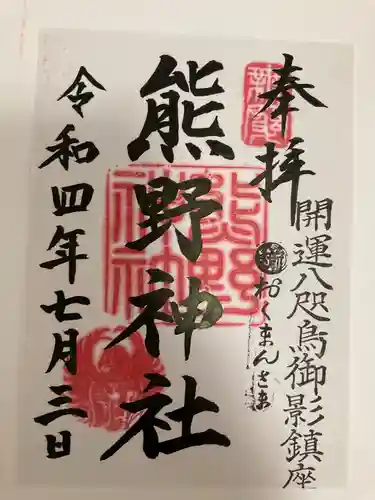 奉拝
開運八咫烏御影鎮座
おくまんさま
熊野神社
熊野神社
令和四年七月三日